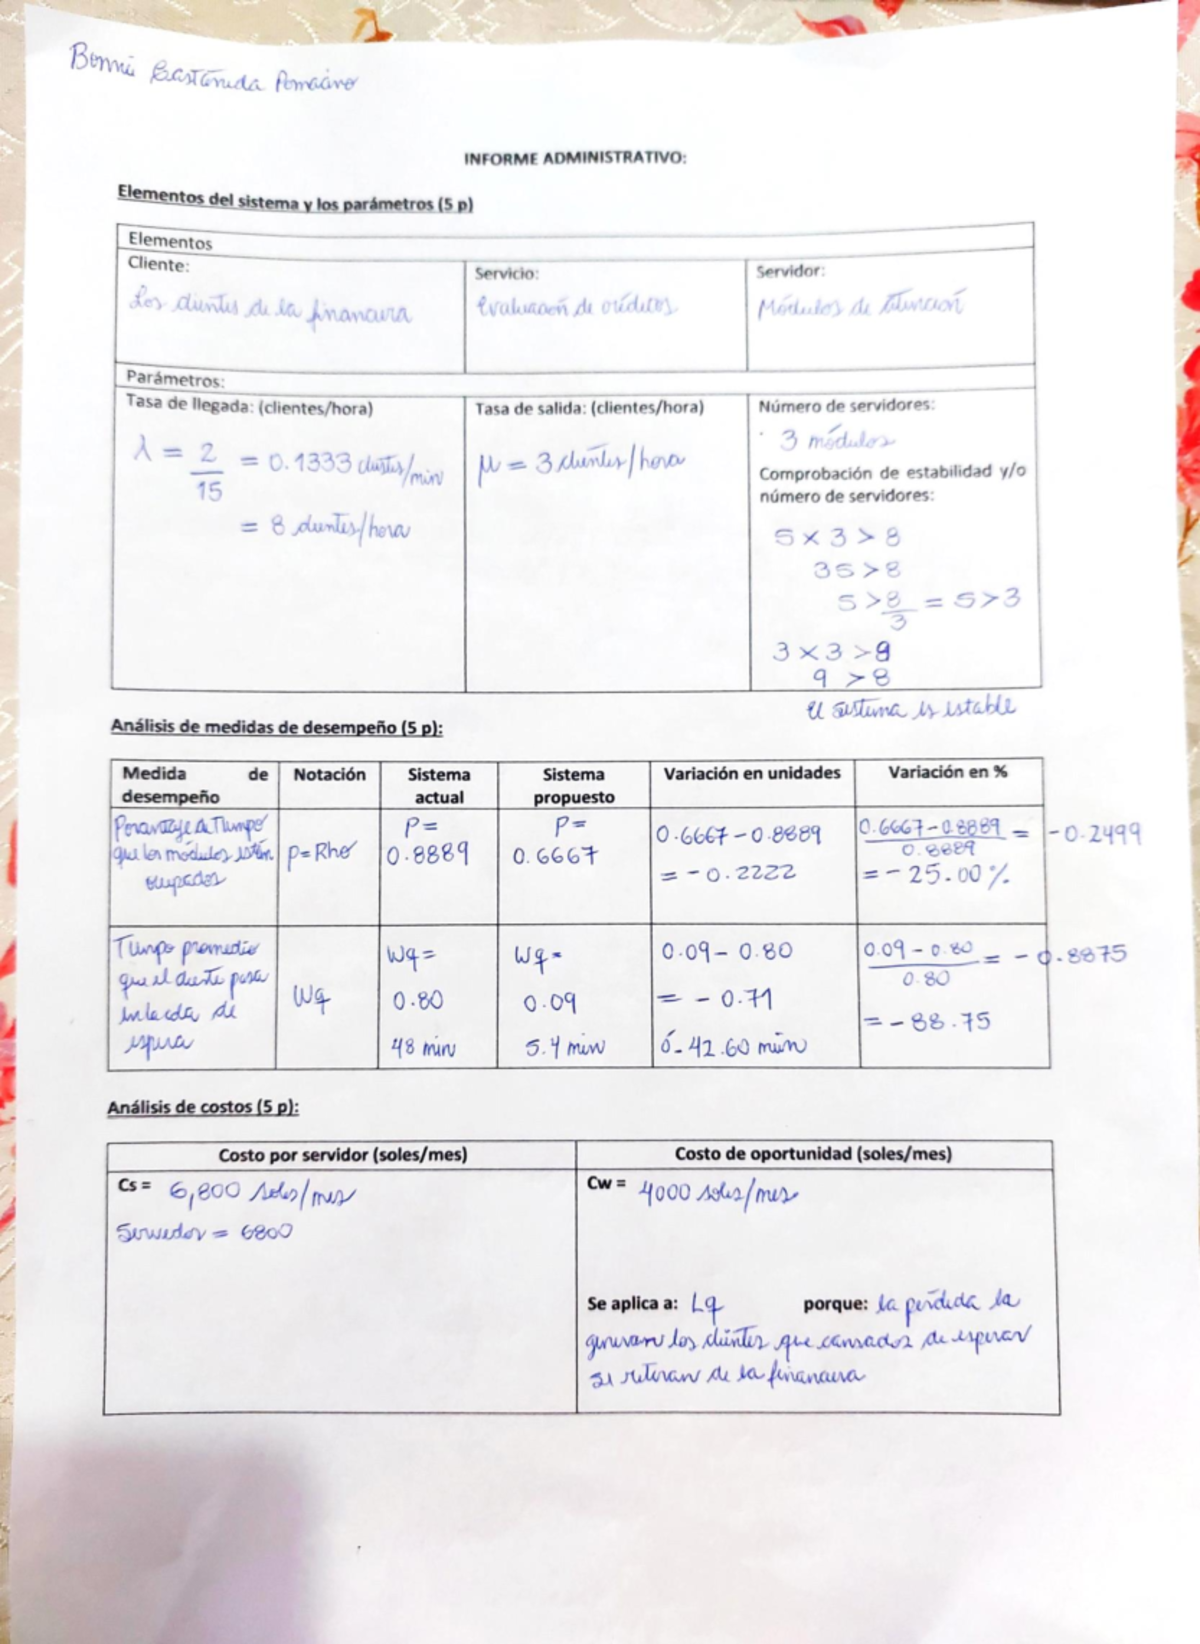 Bonni Castañeda Pomacino
INFORME ADMINISTRATIVO:
Elementos del sistema y los parámetros (5 p)
Elementos
Cliente:
Los clientes de la financiera
Servicio:
Evaluación de créditos
Servidor:
Módulos de atención
Parámetros:
Tasa de llegada: (clientes/hora)
λ = 2/15 = 0.1333 clientes/min
= 8 clientes/hora
Tasa de salida: (clientes/hora)
μ = 3 clientes/hora
Número de servidores:
3 módulos
Comprobación de estabilidad y/o
número de servidores:
S × 3 > 8
3S > 8
S > 8/3 = S > 3
3 × 3 > 8
9 > 8
El sistema es estable
Análisis de medidas de desempeño (5 p):
Medida de
desempeño
Notación
Sistema
actual
Sistema
propuesto
Variación en unidades
Variación en %
Porcentaje de Tiempo
que los módulos están
ocupados
P = Rho
P =
0.8889
P =
0.6667
0.6667 - 0.8889
= - 0.2222
0.6667 - 0.8889 / 0.8889 = - 0.2499
= - 25.00 %
Tiempo promedio
que el cliente pasa
en la cola de
espera
Wq
Wq =
0.80
48 min
Wq =
0.09
5.4 min
0.09 - 0.80
= - 0.71
ó - 42.60 min
0.09 - 0.80 / 0.80 = - 0.8875
= - 88.75
Análisis de costos (5 p):
Costo por servidor (soles/mes)
Costo de oportunidad (soles/mes)
Cs = 6,800 soles/mes
Servidor = 6800
Cw = 4000 soles/mes
Se aplica a: Lq porque: la pérdida la
generan los clientes que cansados de esperar
se retiran de la financiera